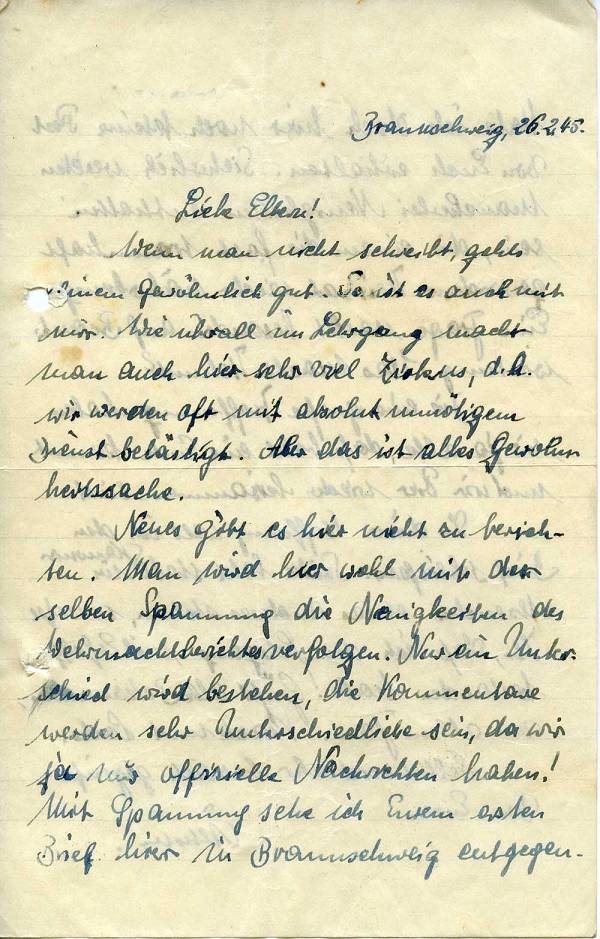 Braunschweig, 26.2.45.
Liebe Eltern!
Wenn man nicht schreibt, gehts
einem gewöhnlich gut. So ist es auch mit
mir. Wie überall im Lehrgang macht
man auch hier sehr viel Zirkus, d.h.
wir werden oft mit absolut unnötigem
Dienst belästigt. Aber das ist alles Gewohn-
heitssache.
Neues gibt es hier nicht zu berich-
ten. Man wird hier wohl mit der
selben Spannung die Neuigkeiten des
Wehrmachtsberichtes verfolgen. Nur ein Unter-
schied wird bestehen, die Kommentare
werden sehr Unterschiedliche sein, da wir
ja nur offizielle Nachrichten haben!
Mit Spannung sehe ich Eurem ersten
Brief hier in Braunschweig entgegen.